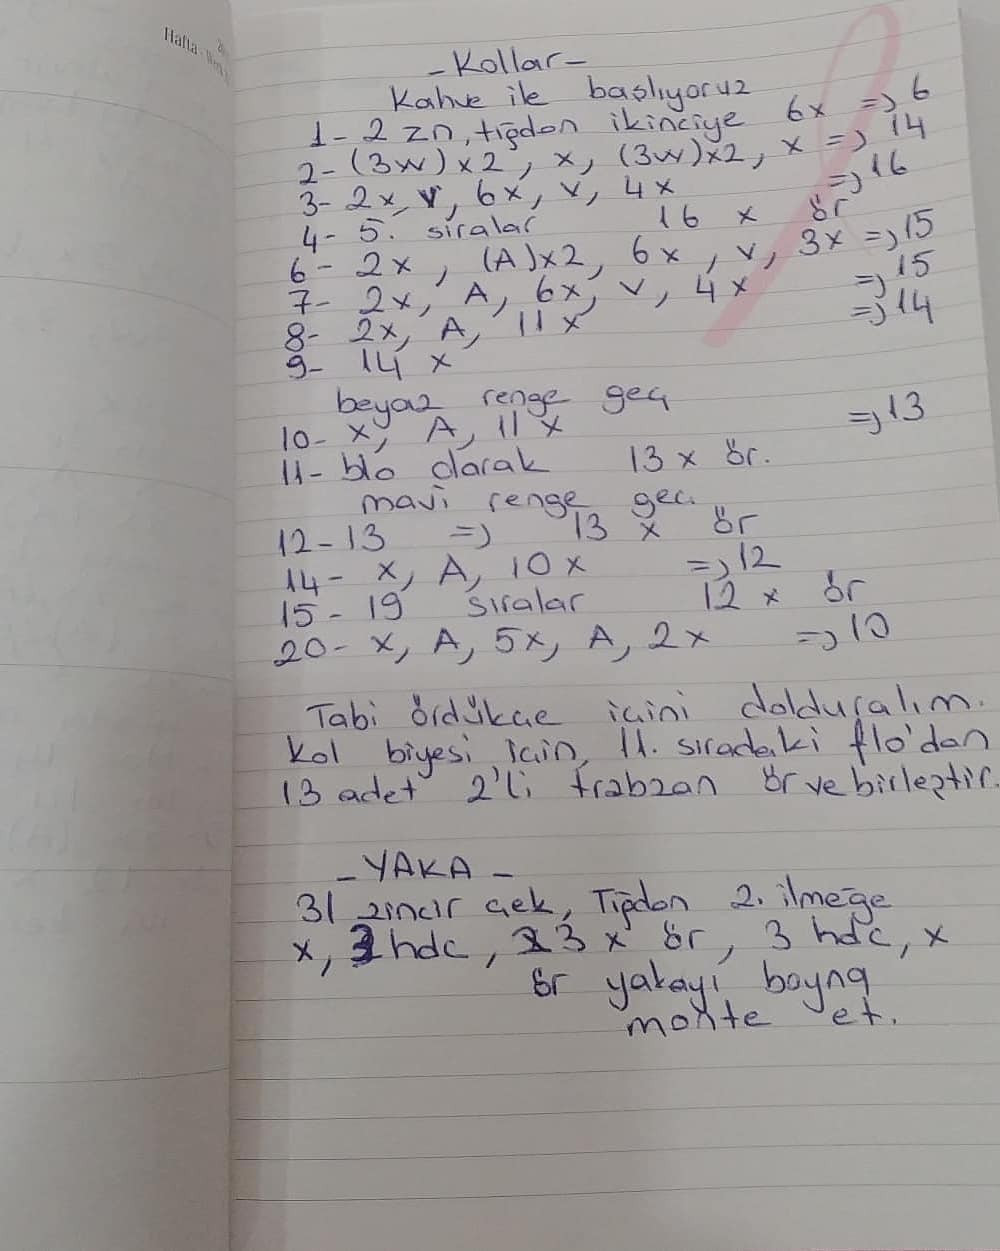 Hafta
- Kollar -
Kahve ile başlıyoruz
1- 2 zn, tığdan ikinciye 6x => 6
2- (3w)x2, x, (3w)x2, x => 14
3- 2x, v, 6x, v, 4x => 16
4- 5. sıralar 16 x ör
6- 2x, (A)x2, 6x, v, 3x => 15
7- 2x, A, 6x, v, 4x => 15
8- 2x, A, 11x => 14
9- 14 x
beyaz renge geç
10- x, A, 11x => 13
11- blo olarak 13 x ör.
mavi renge geç.
12-13 => 13 x ör
14- x, A, 10x => 12
15-19 sıralar 12 x ör
20- x, A, 5x, A, 2x => 10
Tabi ördükçe içini dolduralım.
Kol biyesi için, 11. sıradaki flo'dan
13 adet 2'li trabzan ör ve birleştir.
- YAKA -
31 zincir çek, Tığdan 2. ilmeğe
x, 3 hdc, 23 x ör, 3 hdc, x
ör yakayı boyna
monte et.